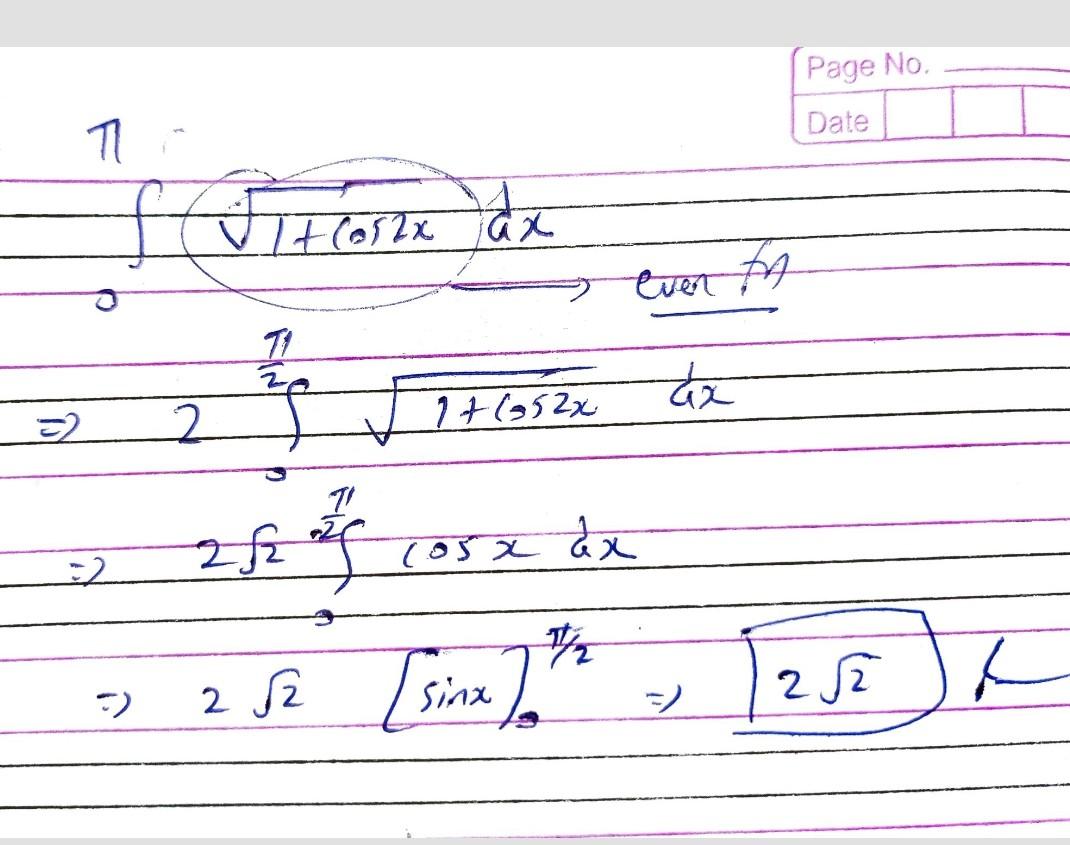 Page No.
Date
∫₀^π √(1+cos2x) dx
→ even fn
⇒ 2 ∫₀^(π/2) √(1+cos2x) dx
⇒ 2√2 ∫₀^(π/2) cos x dx
⇒ 2√2 [sinx]₀^(π/2) ⇒ 2√2